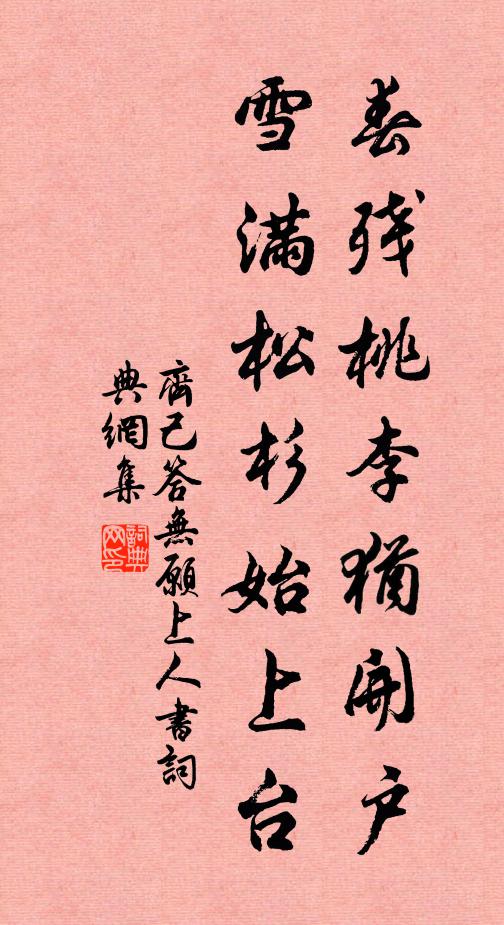 春残桃李猶開戶
雪滿松杉始上台
齊己答無願上人書詞
典網集
詞典
网印